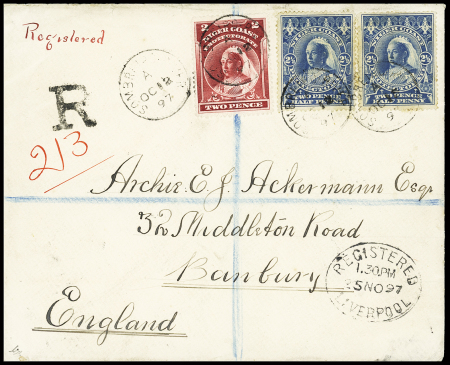 Registered
2 2
NIGER COAST
PROTECTORATE
TWO PENCE
NIGER COAST
2½ 2½
TWO PENCE
HALF PENNY
NIGER COAST
2½ 2½
TWO PENCE
HALF PENNY
A
OC 18
97
R
213
Archie. E. J. Ackermann Esqr
32 Middleton Road
Banbury
England
REGISTERED
1.30PM
25 NO 97
LIVERPOOL